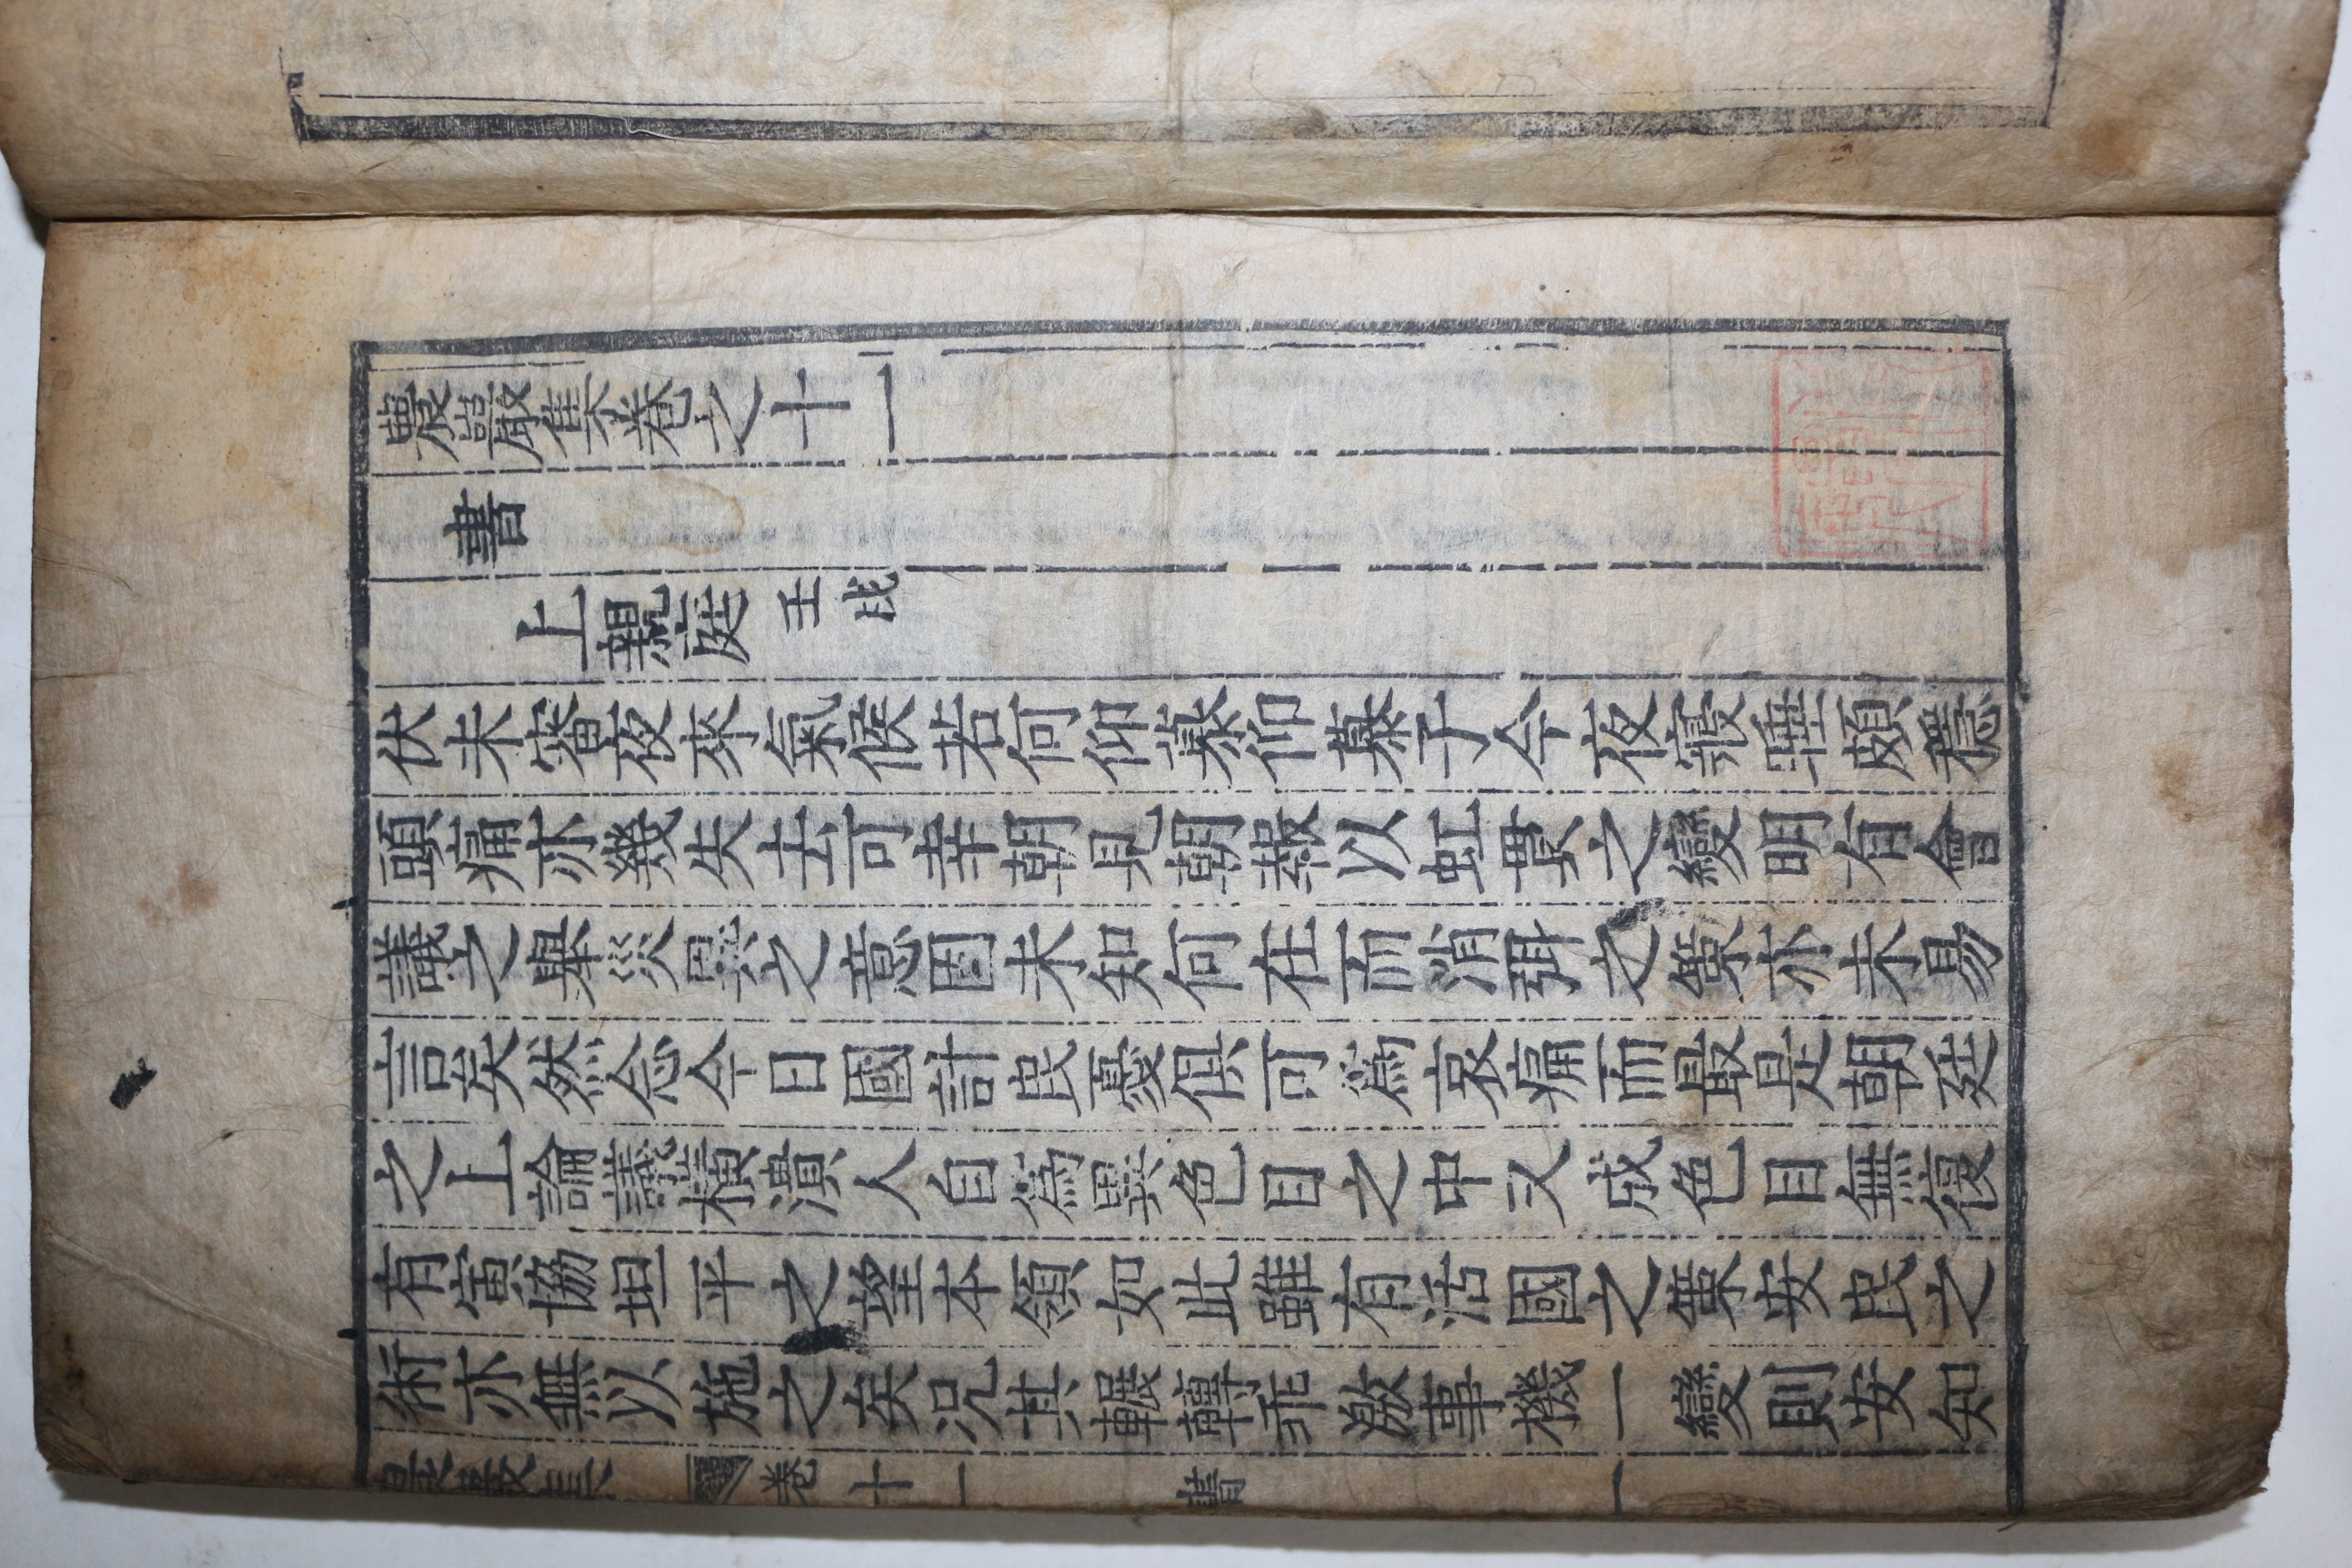 集卷之十一
書
上親庭 壬
伏未審夜來氣候若何仰慕仰慕子今夜寢睡頗穩
頭痛亦幾失去可幸朝見朝報以虹貫之變明有會
議之舉災異之意固未知何在而消弭之策亦未易
言矣然念今日國計民憂俱可爲哀痛而最是朝廷
之上論議橫潰人自爲異色目之中又成色目無復
有寅協坦平之望本領如此雖有活國之策安民之
術亦無以施之矣況其輾轉乖激事機一變則安知
集 卷十一 書 一